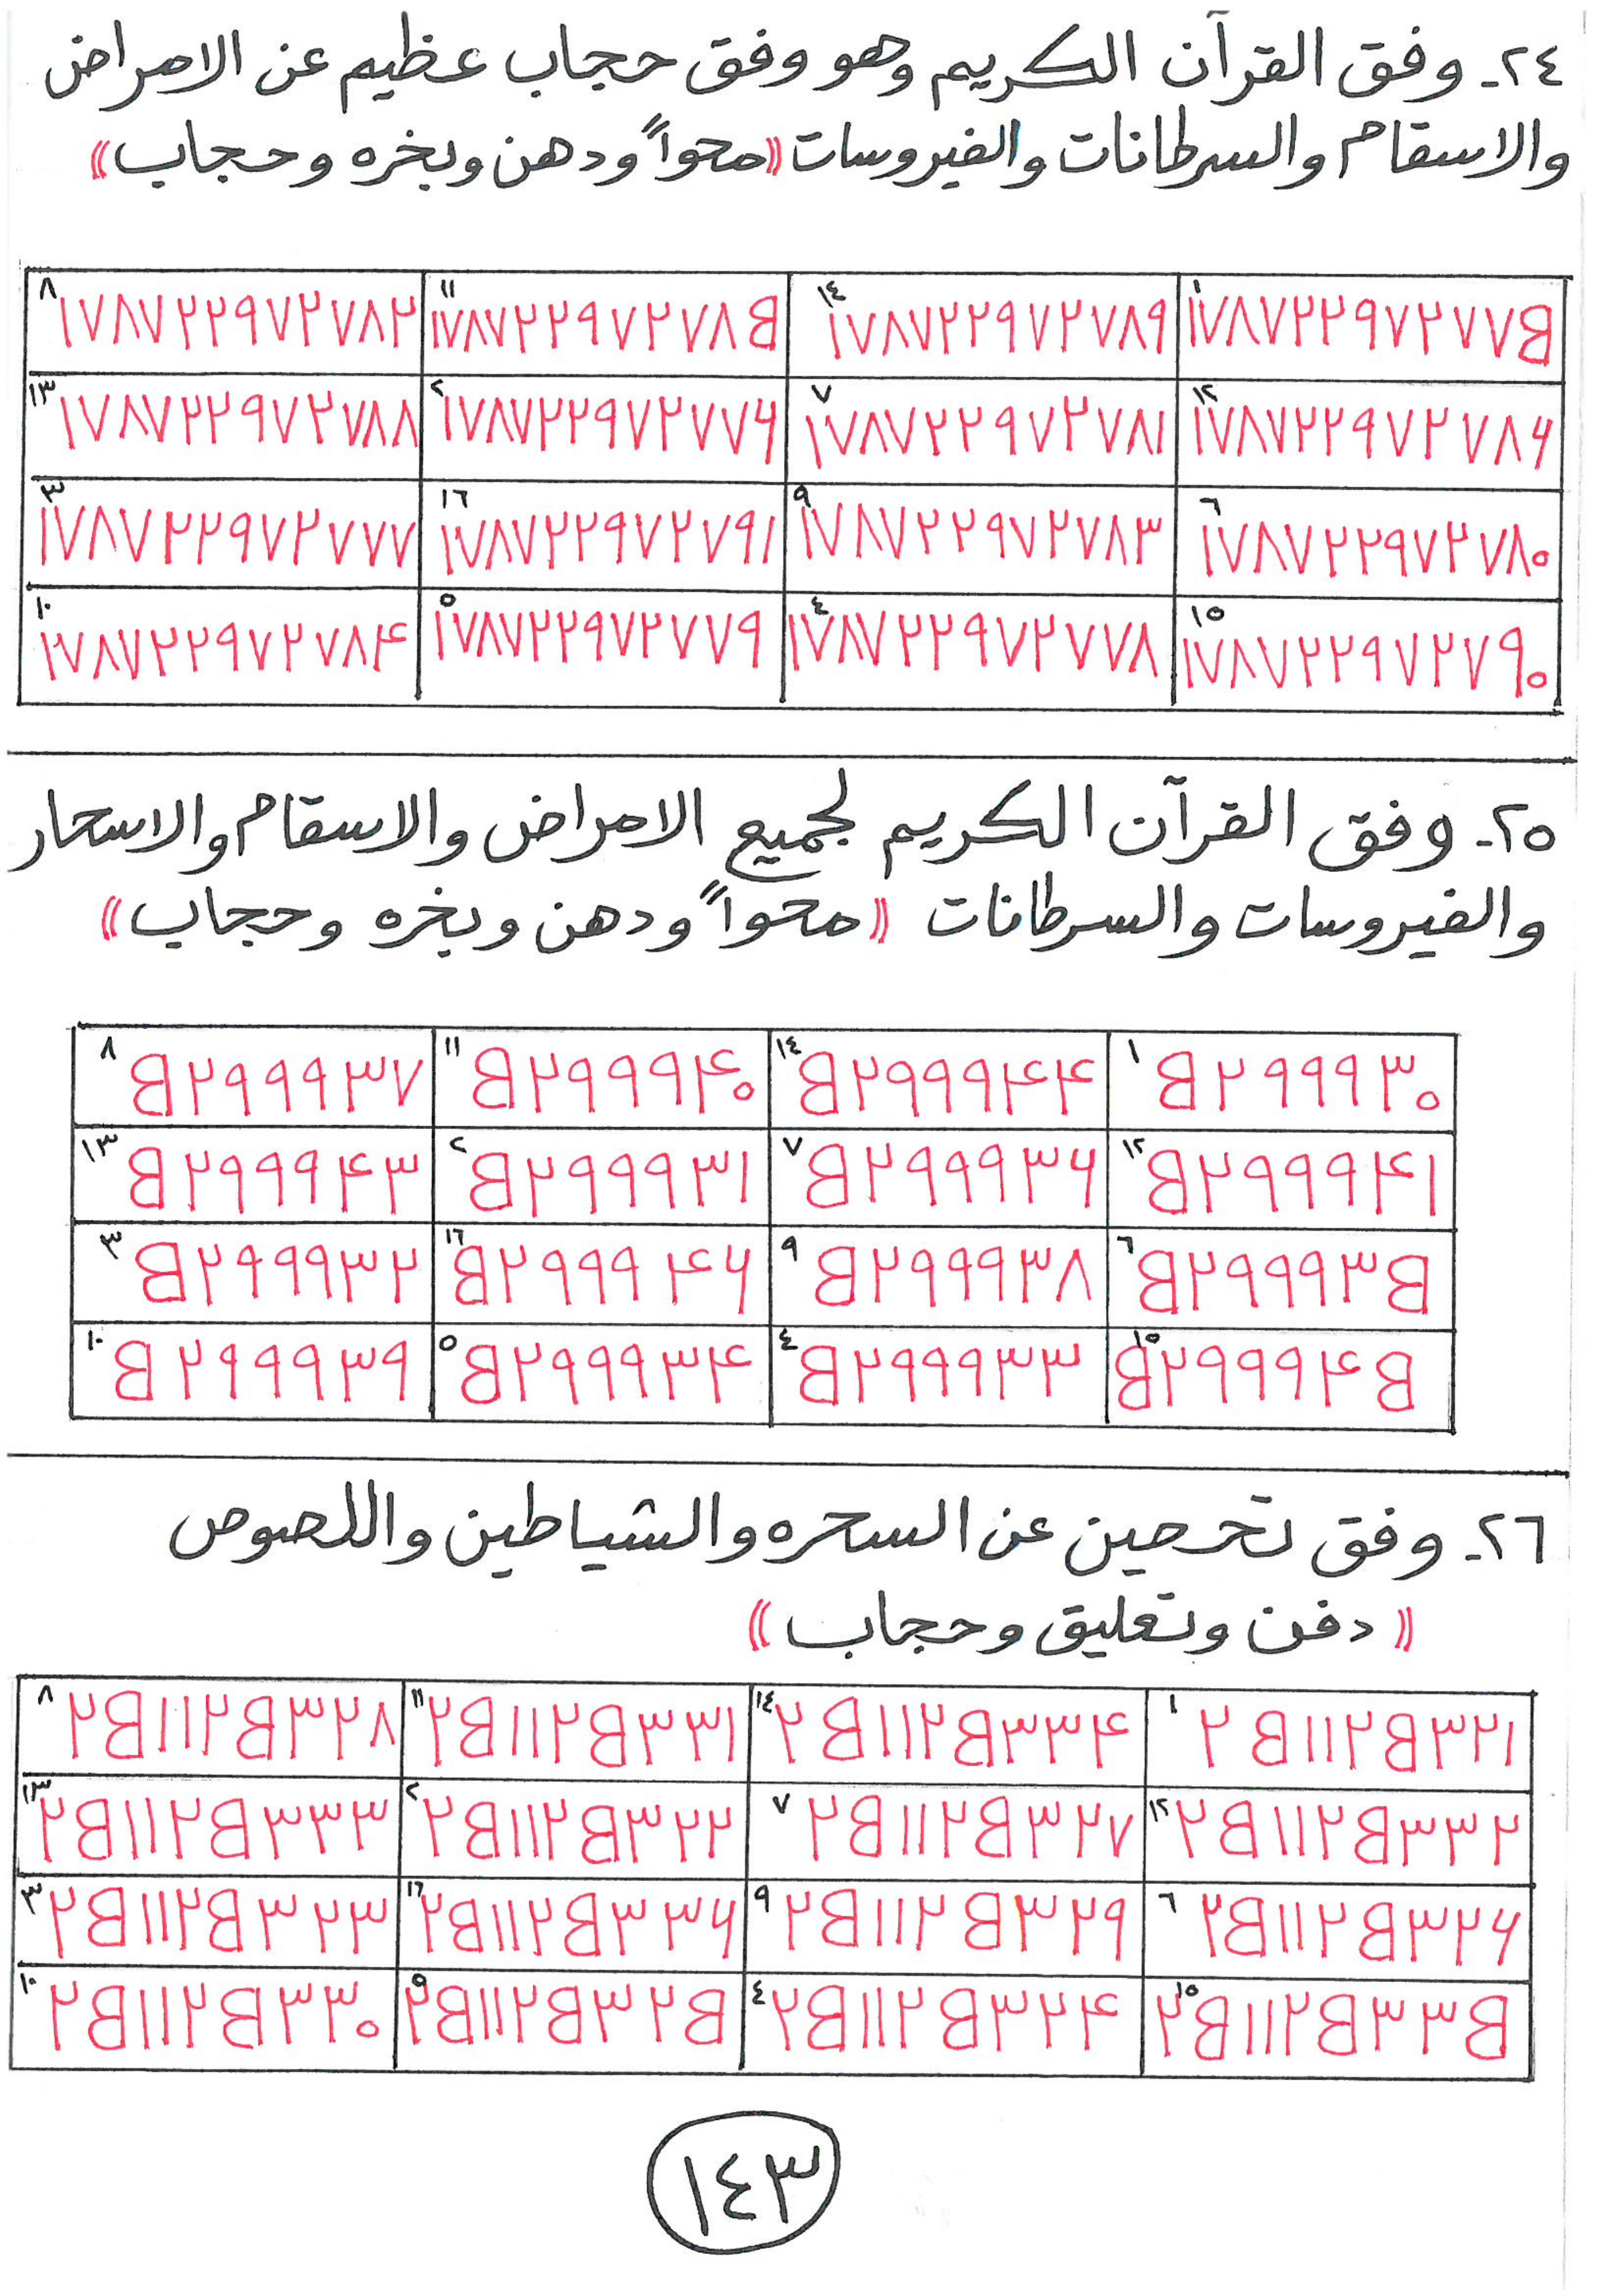 ٢٤- وفق القرآن الكريم وهو وفق حجاب عظيم عن الامراض
والاسقام والسرطانات والفيروسات ((محواً ودهن وبخره وحجاب))
١ ١٧٨٧٢٢٩٧٢٧٧٥ ١٤ ١٧٨٧٢٢٩٧٢٧٨٩ ١١ ١٧٨٧٢٢٩٧٢٧٨٥ ٨ ١٧٨٧٢٢٩٧٢٧٨٢
١٢ ١٧٨٧٢٢٩٧٢٧٨۶ ٧ ١٧٨٧٢٢٩٧٢٧٨١ ٢ ١٧٨٧٢٢٩٧٢٧٧۶ ١٣ ١٧٨٧٢٢٩٧٢٧٨٨
٦ ١٧٨٧٢٢٩٧٢٧٨٠ ٩ ١٧٨٧٢٢٩٧٢٧٨٣ ١٦ ١٧٨٧٢٢٩٧٢٧٩١ ٣ ١٧٨٧٢٢٩٧٢٧٧٧
١٥ ١٧٨٧٢٢٩٧٢٧٩٠ ٤ ١٧٨٧٢٢٩٧٢٧٧٨ ٥ ١٧٨٧٢٢٩٧٢٧٧٩ ١٠ ١٧٨٧٢٢٩٧٢٧٨۴
٢٥- وفق القرآن الكريم لجميع الامراض والاسقام والاسحار
والفيروسات والسرطانات ((محواً ودهن وبخره وحجاب))
١ ٥٢٩٩٩٣٠ ١٤ ٥٢٩٩٩۴۴ ١١ ٥٢٩٩٩۴٠ ٨ ٥٢٩٩٩٣٧
١٢ ٥٢٩٩٩۴١ ٧ ٥٢٩٩٩٣۶ ٢ ٥٢٩٩٩٣١ ١٣ ٥٢٩٩٩۴٣
٦ ٥٢٩٩٩٣٥ ٩ ٥٢٩٩٩٣٨ ١٦ ٥٢٩٩٩۴۶ ٣ ٥٢٩٩٩٣٢
١٥ ٥٢٩٩٩۴٥ ٤ ٥٢٩٩٩٣٣ ٥ ٥٢٩٩٩٣۴ ١٠ ٥٢٩٩٩٣٩
٢٦- وفق تحصين عن السحره والشياطين واللصوص
((دفن وتعليق وحجاب))
١ ٢٥١١٢٥٣٢١ ١٤ ٢٥١١٢٥٣٣۴ ١١ ٢٥١١٢٥٣٣١ ٨ ٢٥١١٢٥٣٢٨
١٢ ٢٥١١٢٥٣٣٢ ٧ ٢٥١١٢٥٣٢٧ ٢ ٢٥١١٢٥٣٢٢ ١٣ ٢٥١١٢٥٣٣٣
٦ ٢٥١١٢٥٣٢۶ ٩ ٢٥١١٢٥٣٢٩ ١٦ ٢٥١١٢٥٣٣۶ ٣ ٢٥١١٢٥٣٢٣
١٥ ٢٥١١٢٥٣٣٥ ٤ ٢٥١١٢٥٣٢۴ ٥ ٢٥١١٢٥٣٢٥ ١٠ ٢٥١١٢٥٣٣٠
١٤٣